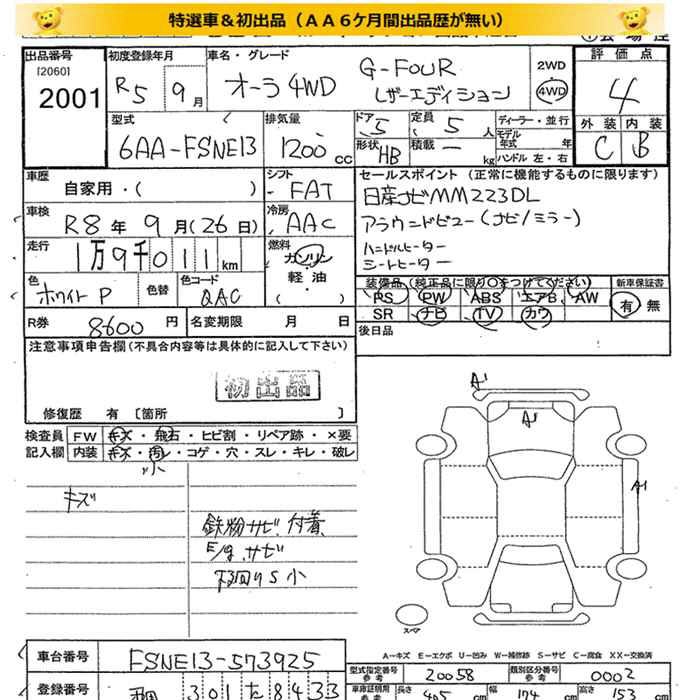 特選車＆初出品（ＡＡ６ケ月間出品歴が無い）
出品番号
[20601
2001
初度登録年月
R5 9月
車名・グレード
オーラ 4WD
G-FOUR
レザーエディション
2WD
4WD
評価点
4
外装 内装
C B
型式
6AA-FSNE13
排気量
1200cc
ドア
5
定員
5人
形状
HB
積載
ー kg
ディーラー・並行
モデル年式 年
ハンドル 左・右
車歴
自家用・( )
シフト
FAT
セールスポイント (正常に機能するものに限ります)
日産ナビMM223DL
アラウンドビュー(ナビ/ミラー)
ハンドルヒーター
シートヒーター
車検
R8年9月(26日)
冷房
AAC
走行
1万9千011km
燃料
ガソリン
軽・油
( )
色
ホワイトP
色替
色コード
QAC
装備品 (純正品に限り○をつけてください)
PS PW ABS エアB AW
SR ナビ TV カワ
新車保証書
有 無
R券
8600円
名変期限 月 日
後日品
注意事項申告欄(不具合内容等は具体的に記入して下さい)
初出品
修復歴 有 [箇所 ]
検査員
記入欄
FW キズ・飛石・ヒビ割・リペア跡・×要
内装 キズ・汚レ・コゲ・穴・スレ・キレ・破レ
小
キズ
鉄粉サビ付着
E/g サビ
下回りS小
A1
A1
A1
スペア
A-キズ E-エクボ U-凹み W-補修跡 S-サビ C-腐食 XX-交換済
車台番号
FSNE13-573925
登録番号
301 た 8433
型式指定番号
参考
20058
類別区分番号
参考
0002
車庫証明用
参考
長さ
405cm
幅
174cm
高さ
153cm